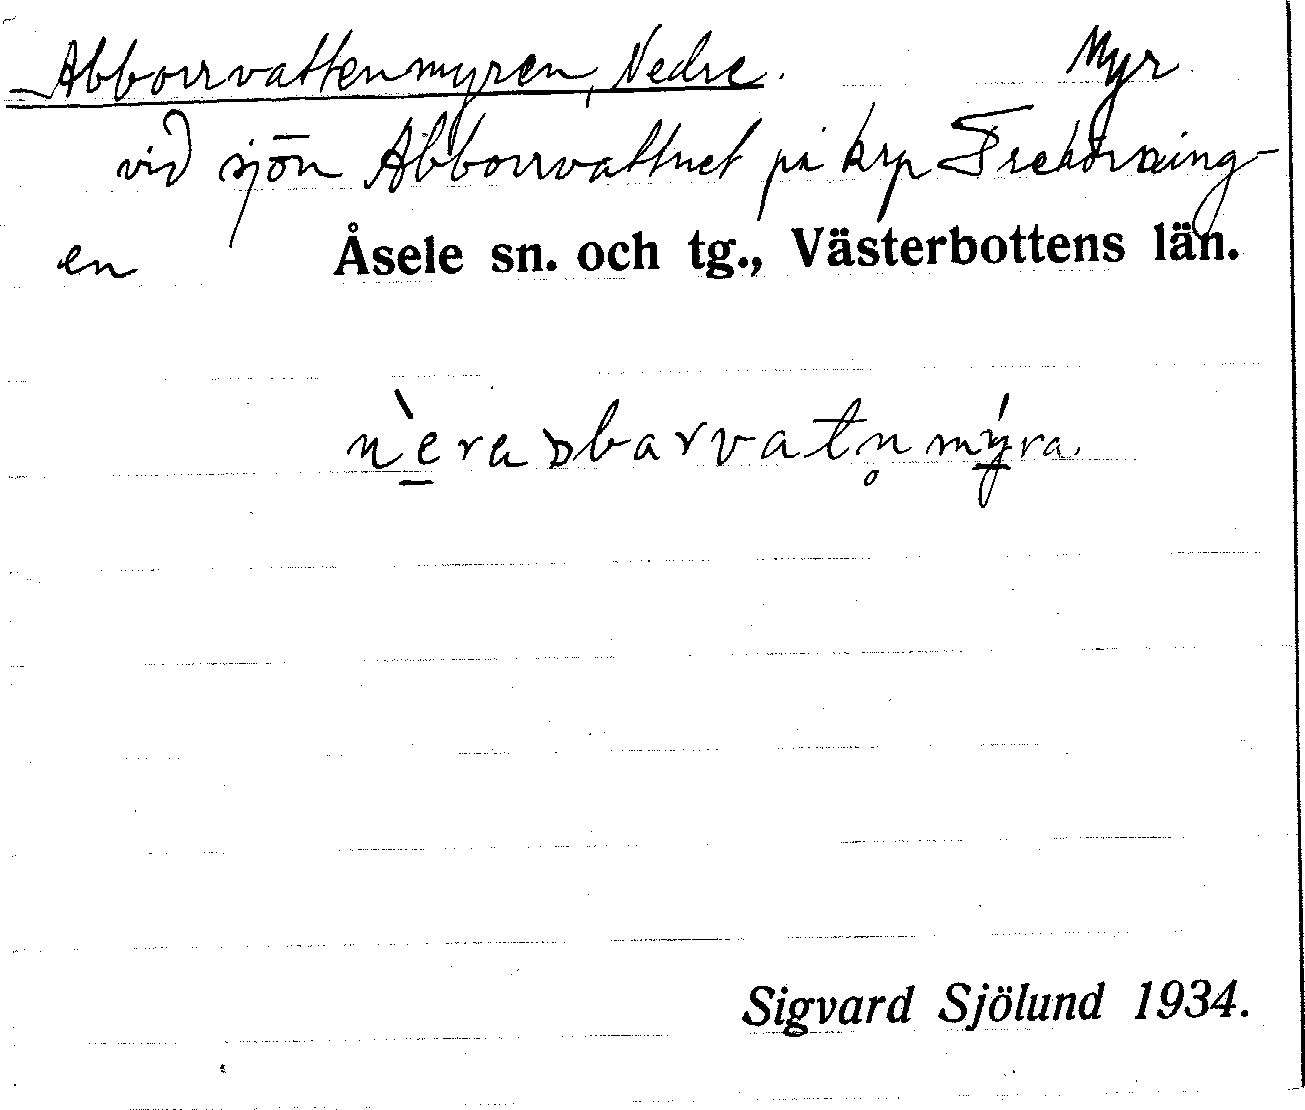 Abborrvattenmyren, Nedre. Myr
vid sjön Abborrvattnet på krp Trehörning-
en Åsele sn. och tg., Västerbottens län.
nèra abarvatn̥mýra.
Sigvard Sjölund 1934.